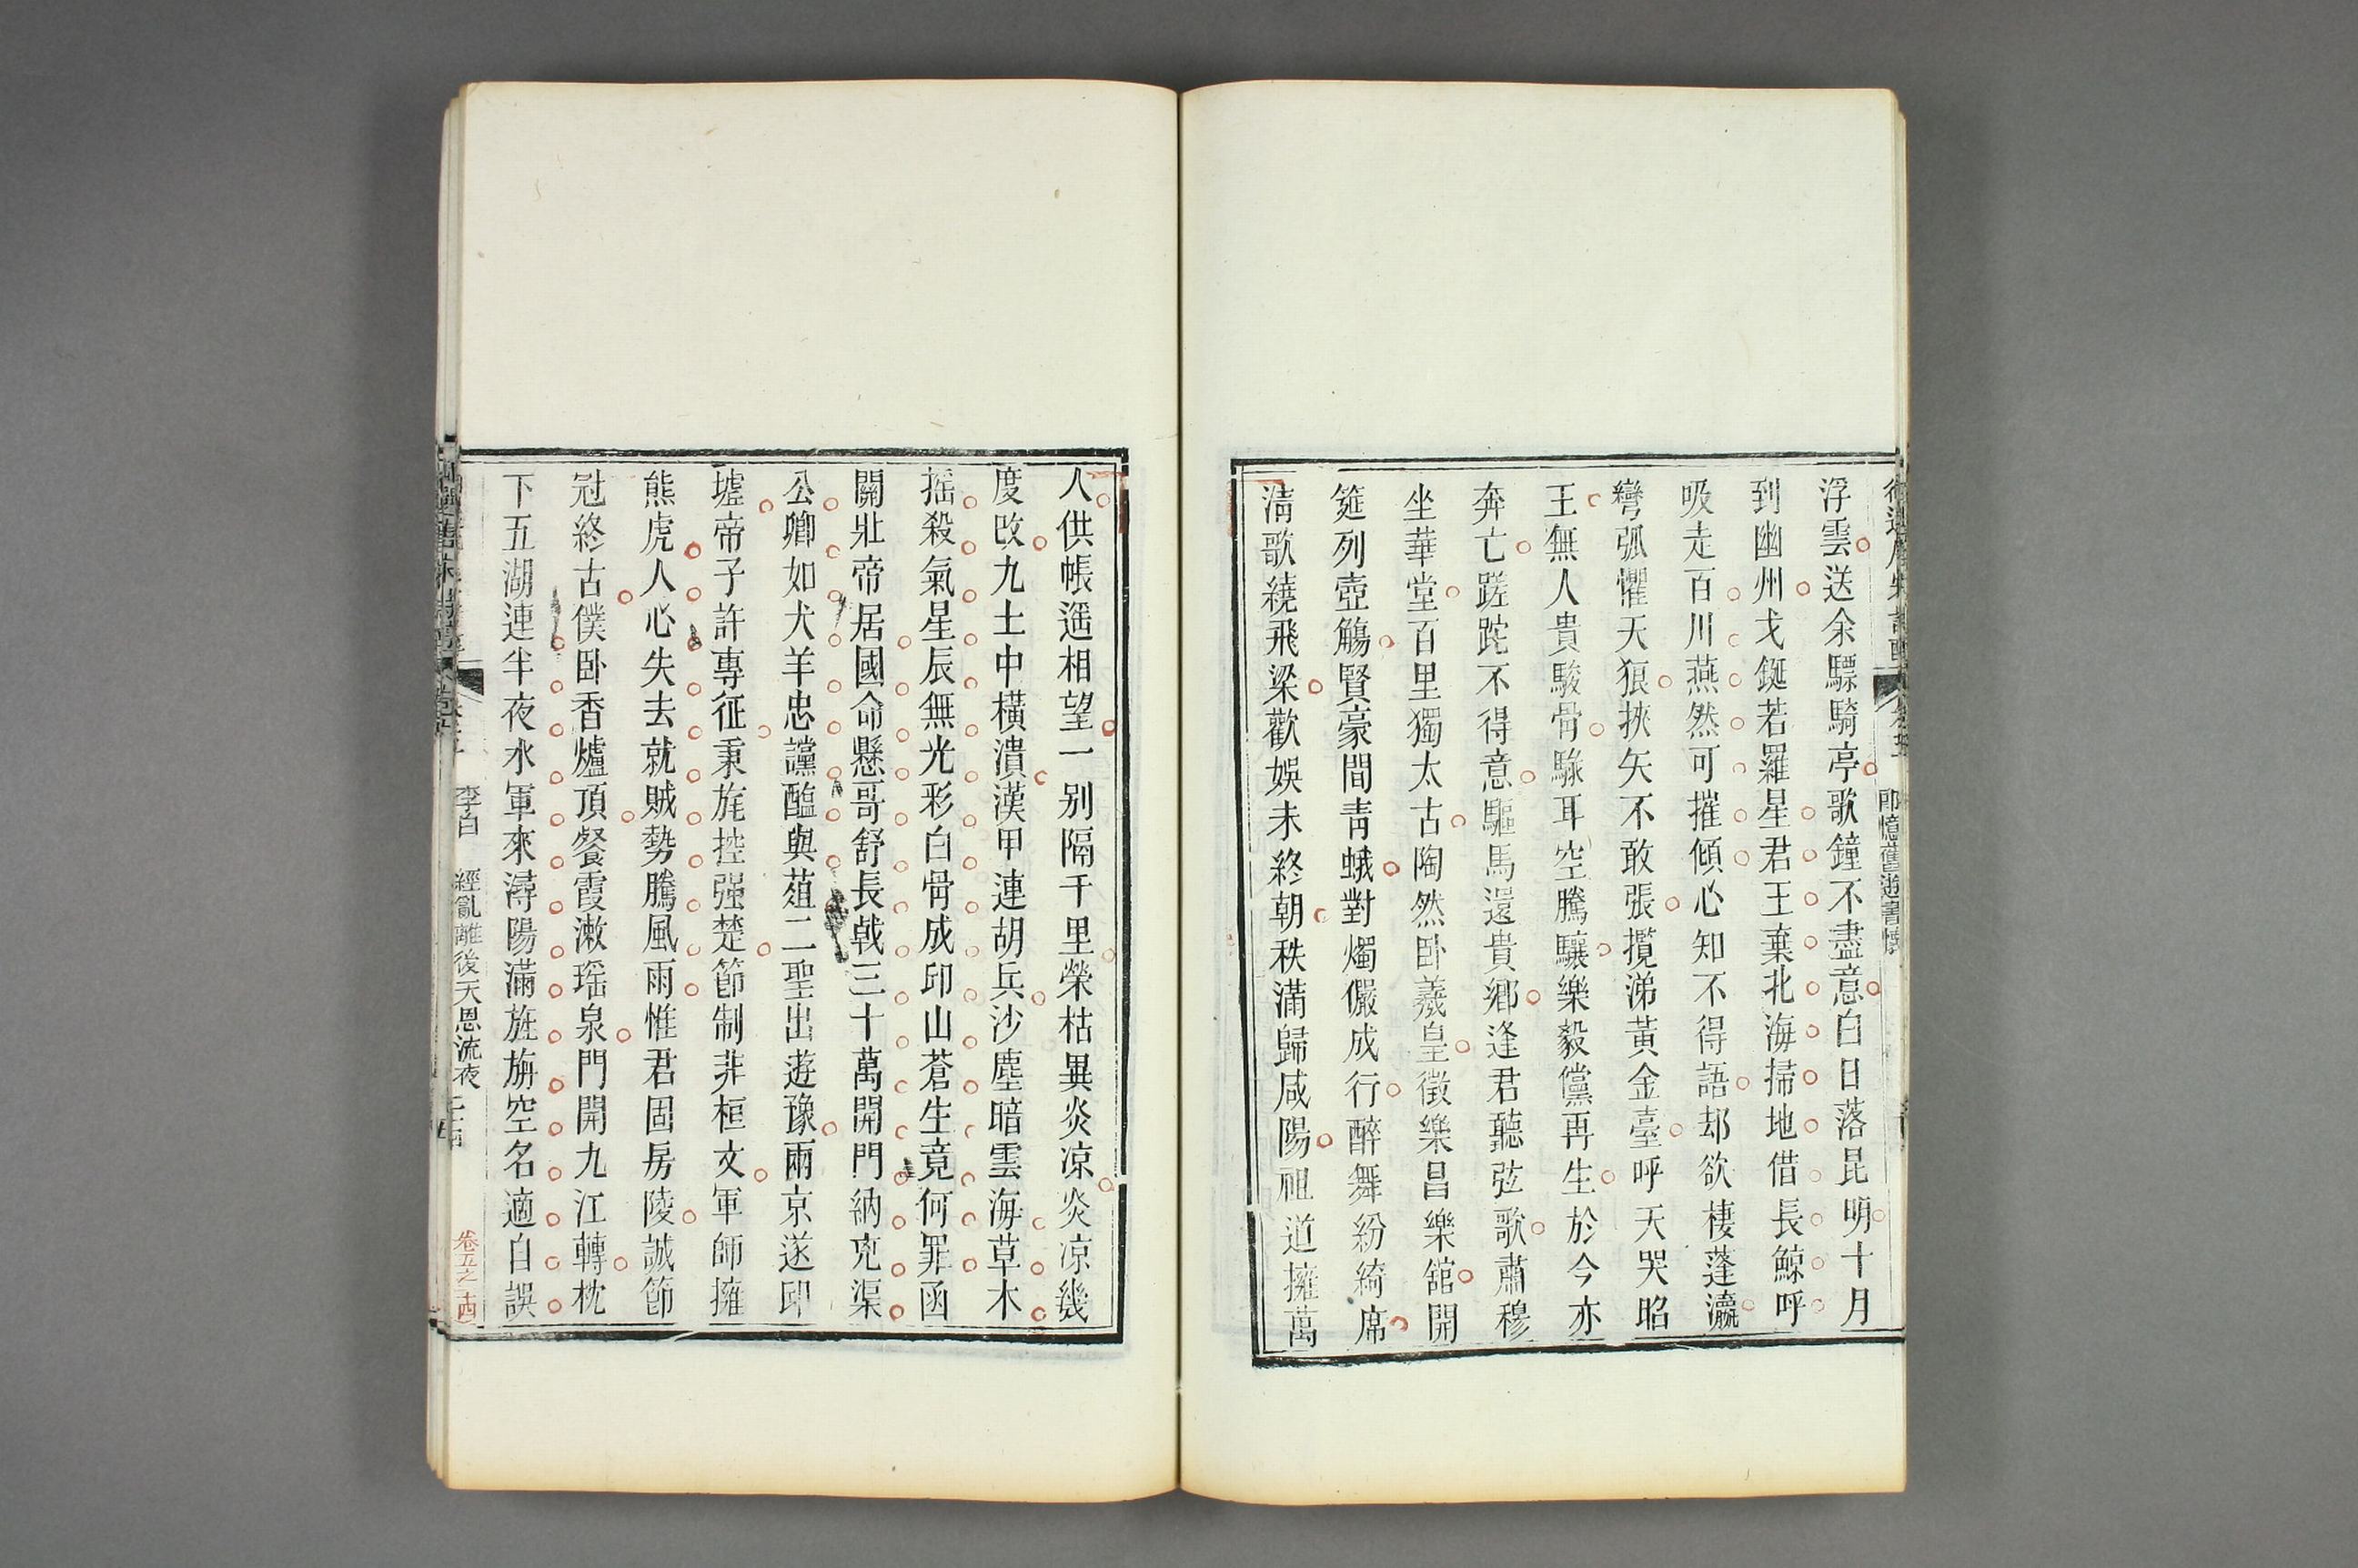 浮雲送余驃騎亭歌鐘不盡意白日落昆明十月
到幽州戈鋋若羅星君王棄北海掃地借長鯨呼
吸走百川燕然可摧傾心知不得語却欲棲蓬瀛
彎弧懼天狼挾矢不敢張攬涕黃金臺呼天哭昭
王無人貴駿骨騄耳空騰驤樂毅儻再生於今亦
奔亡蹉跎不得意驅馬還貴鄉逢君聽弦歌肅穆
坐華堂百里獨太古陶然卧羲皇徵樂昌樂舘開
筵列壺觴賢豪間靑蛾對燭儼成行醉舞紛綺席
淸歌繞飛梁歡娛未終朝秩滿歸咸陽祖道擁萬
人供帳遥相望一别隔千里榮枯異炎凉炎凉幾
度改九土中橫潰漢甲連胡兵沙塵暗雲海草木
摇殺氣星辰無光彩白骨成邱山蒼生竟何罪函
關壯帝居國命懸哥舒長戟三十萬開門納兇渠
公卿如犬羊忠讜醢與葅二聖出遊豫兩京遂邱
墟帝子許專征秉旄控强楚節制非桓文軍師擁
熊虎人心失去就賊勢騰風雨惟君固房陵誠節
冠終古僕卧香爐頂餐霞漱瑶泉門開九江轉枕
下五湖連半夜水軍來潯陽滿旌旃空名適自誤
李白 經亂離後天恩流夜
卷五之十四